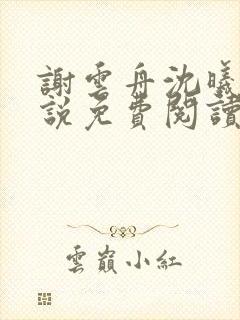 謝雲舟沈曦
說免費閱讀
雲巔小紅